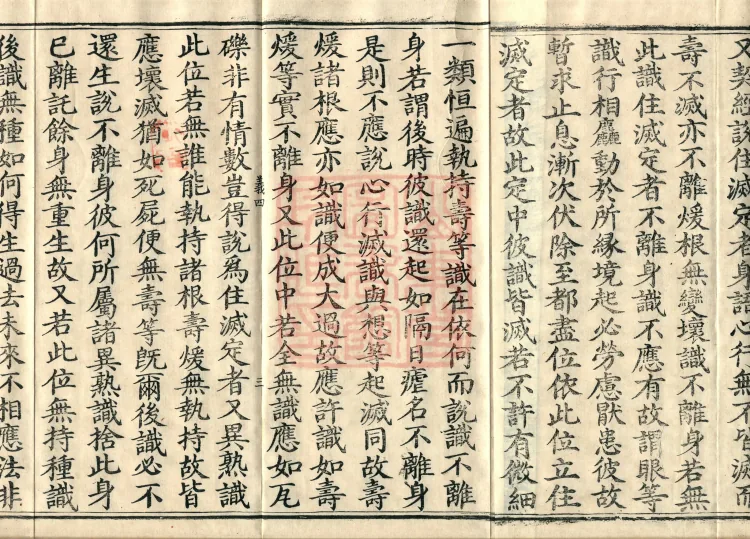 又契經說住滅定者身語心行無不皆滅而
壽不滅亦不離煖根無變壞識不離身若無
此識住滅定者不離身識不應有故謂眼等
識行相麤動於所緣境起必勞慮猒患彼故
暫求止息漸次伏除至都盡位依此位立住
滅定者故此定中彼識皆滅若不許有微細
一類恒遍執持壽等識在依何而說識不離
身若謂後時彼識還起如隔日瘧名不離身
是則不應說心行滅識與想等起滅同故壽
煖諸根應亦如識便成大過故應許識如壽
煖等實不離身又此位中若全無識應如瓦
義四 三
礫非有情數豈得說爲住滅定者又異熟識
此位若無誰能執持諸根壽煖無執持故皆
應壞滅猶如死屍便無壽等旣爾後識必不
還生說不離身彼何所屬諸異熟識捨此身
已離託餘身無重生故又若此位無持種識
後識無種如何得生過去未來不相應法非